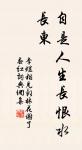 自是人生長恨水
長東
李煜相見歡林花謝了
春紅詞典網集